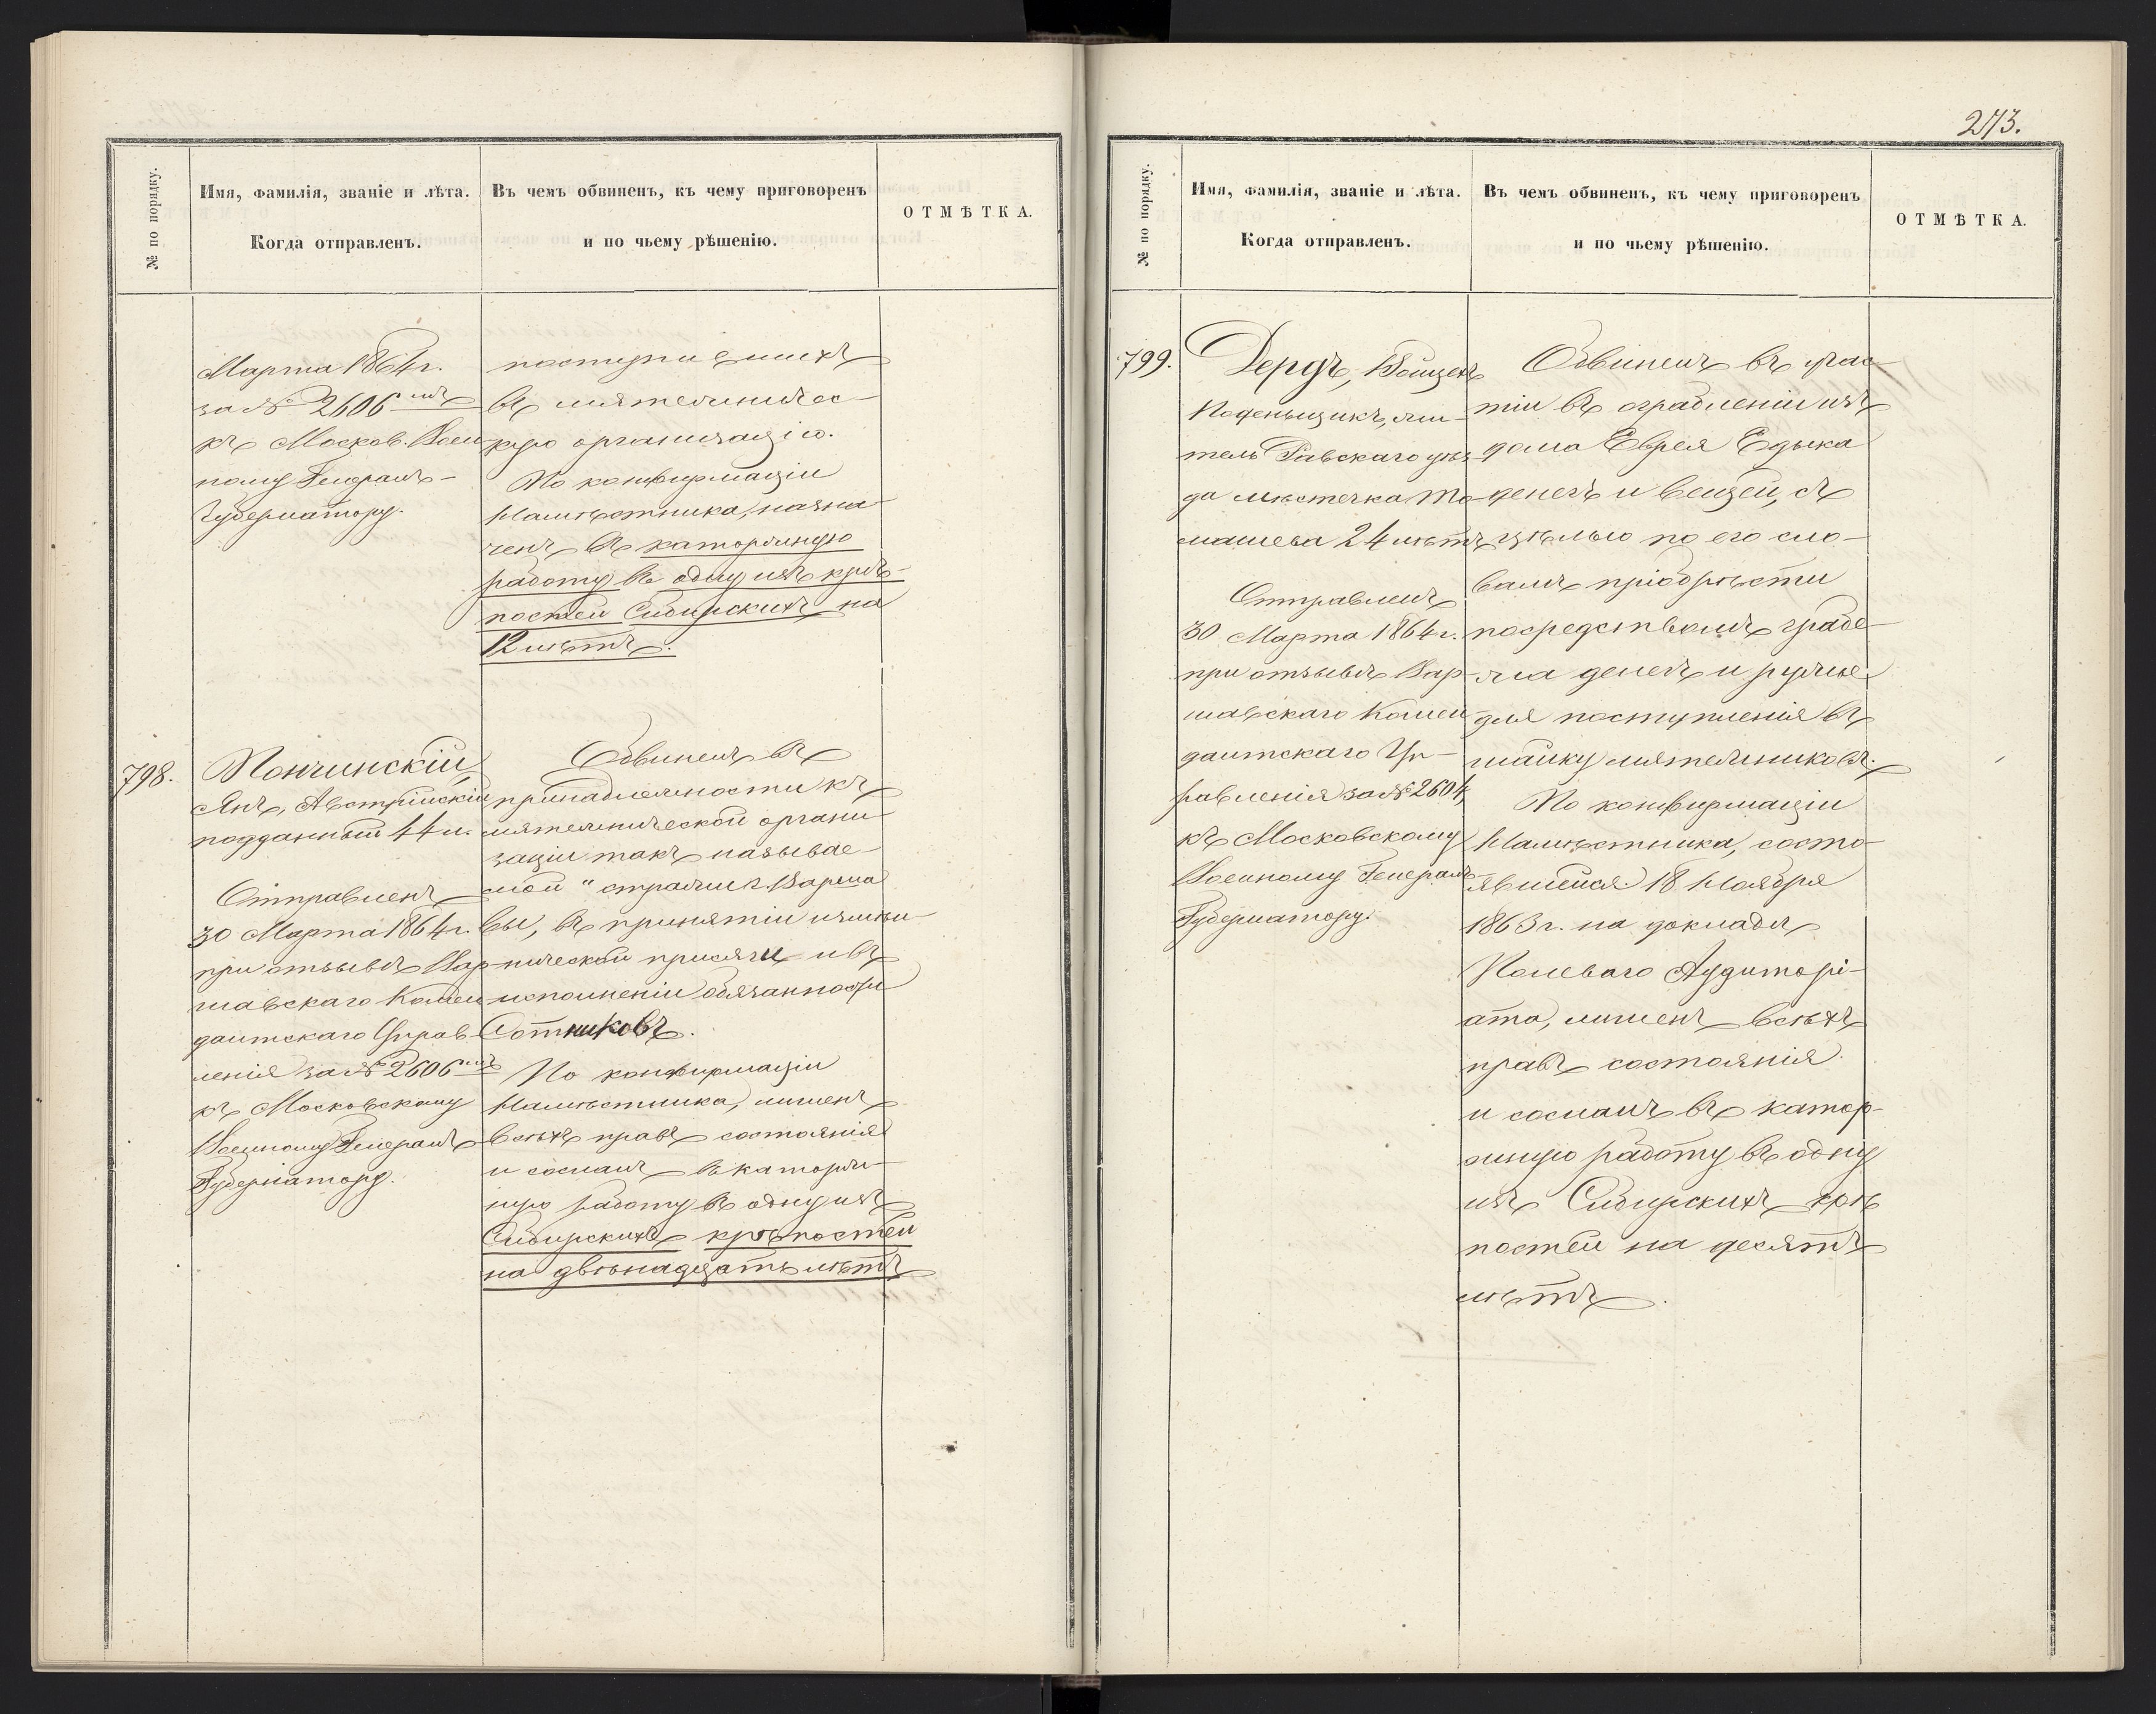 № по порядку.
Имя, фамилія, званіе и лѣта.
Когда отправленъ.
Въ чемъ обвиненъ, къ чему приговоренъ
и по чьему рѣшенію.
ОТМѢТКА.
Марта 1864 г.
за № 2606мъ
къ Москов. Воен
ному Генералъ-
Губернатору.
поступившихъ
въ мятежничес-
кую организацію.
По конфирмаціи
Намѣстника, назна-
ченъ въ каторжную
работу въ одну изъ крѣ-
постей Сибирскихъ на
12 лѣтъ.
798.
Пончинскій,
Янъ, Австрійскій
подданный 44 л.
Отправленъ
30 Марта 1864 г.
при отзывѣ Вар-
шавскаго Комен
дантскаго Управ
ленія за № 2606мъ
къ Московскому
Военному Генералъ
Губернатору.
Обвиненъ въ
принадлежности къ
мятежнической органи
заціи такъ называе-
мой "стражи г. Варша
вы, въ принятіи измѣн-
нической присяги и въ
исполненіи обязанности
Сотниковъ.
По конфирмаціи
Намѣстника, лишенъ
всѣхъ правъ состоянія
и сосланъ въ каторж-
ную работу въ одну изъ
Сибирскихъ крѣпостей
на двѣнадцать лѣтъ
273.
№ по порядку.
Имя, фамилія, званіе и лѣта.
Когда отправленъ.
Въ чемъ обвиненъ, къ чему приговоренъ
и по чьему рѣшенію.
ОТМѢТКА.
799.
Дердъ, Войцехъ
Поденьщикъ, жи-
тель Равскаго уѣз
да мѣстечка То-
машева 24 лѣтъ
Отправленъ
30 Марта 1864 г.
при отзывѣ Вар-
шавскаго Комен-
дантскаго Уп-
равленія за № 2604,
къ Московскому
Военному Генералъ
Губернатору.
Обвиненъ въ учас-
тіи въ ограбленіи изъ
дома Еврея Едыка
денегъ и вещей, съ
цѣлью по его сло-
вамъ пріобрѣсти
посредствомъ грабе-
жа денегъ и ружье
для поступленія въ
шайку мятежниковъ.
По конфирмаціи
Намѣстника, состо-
явшейся 18 Ноября
1863 г. на докладѣ
Полеваго Аудиторі-
ата, лишенъ всѣхъ
правъ состоянія
и сосланъ въ катор-
жную работу въ одну
изъ Сибирскихъ крѣ
постей на десять
лѣтъ.